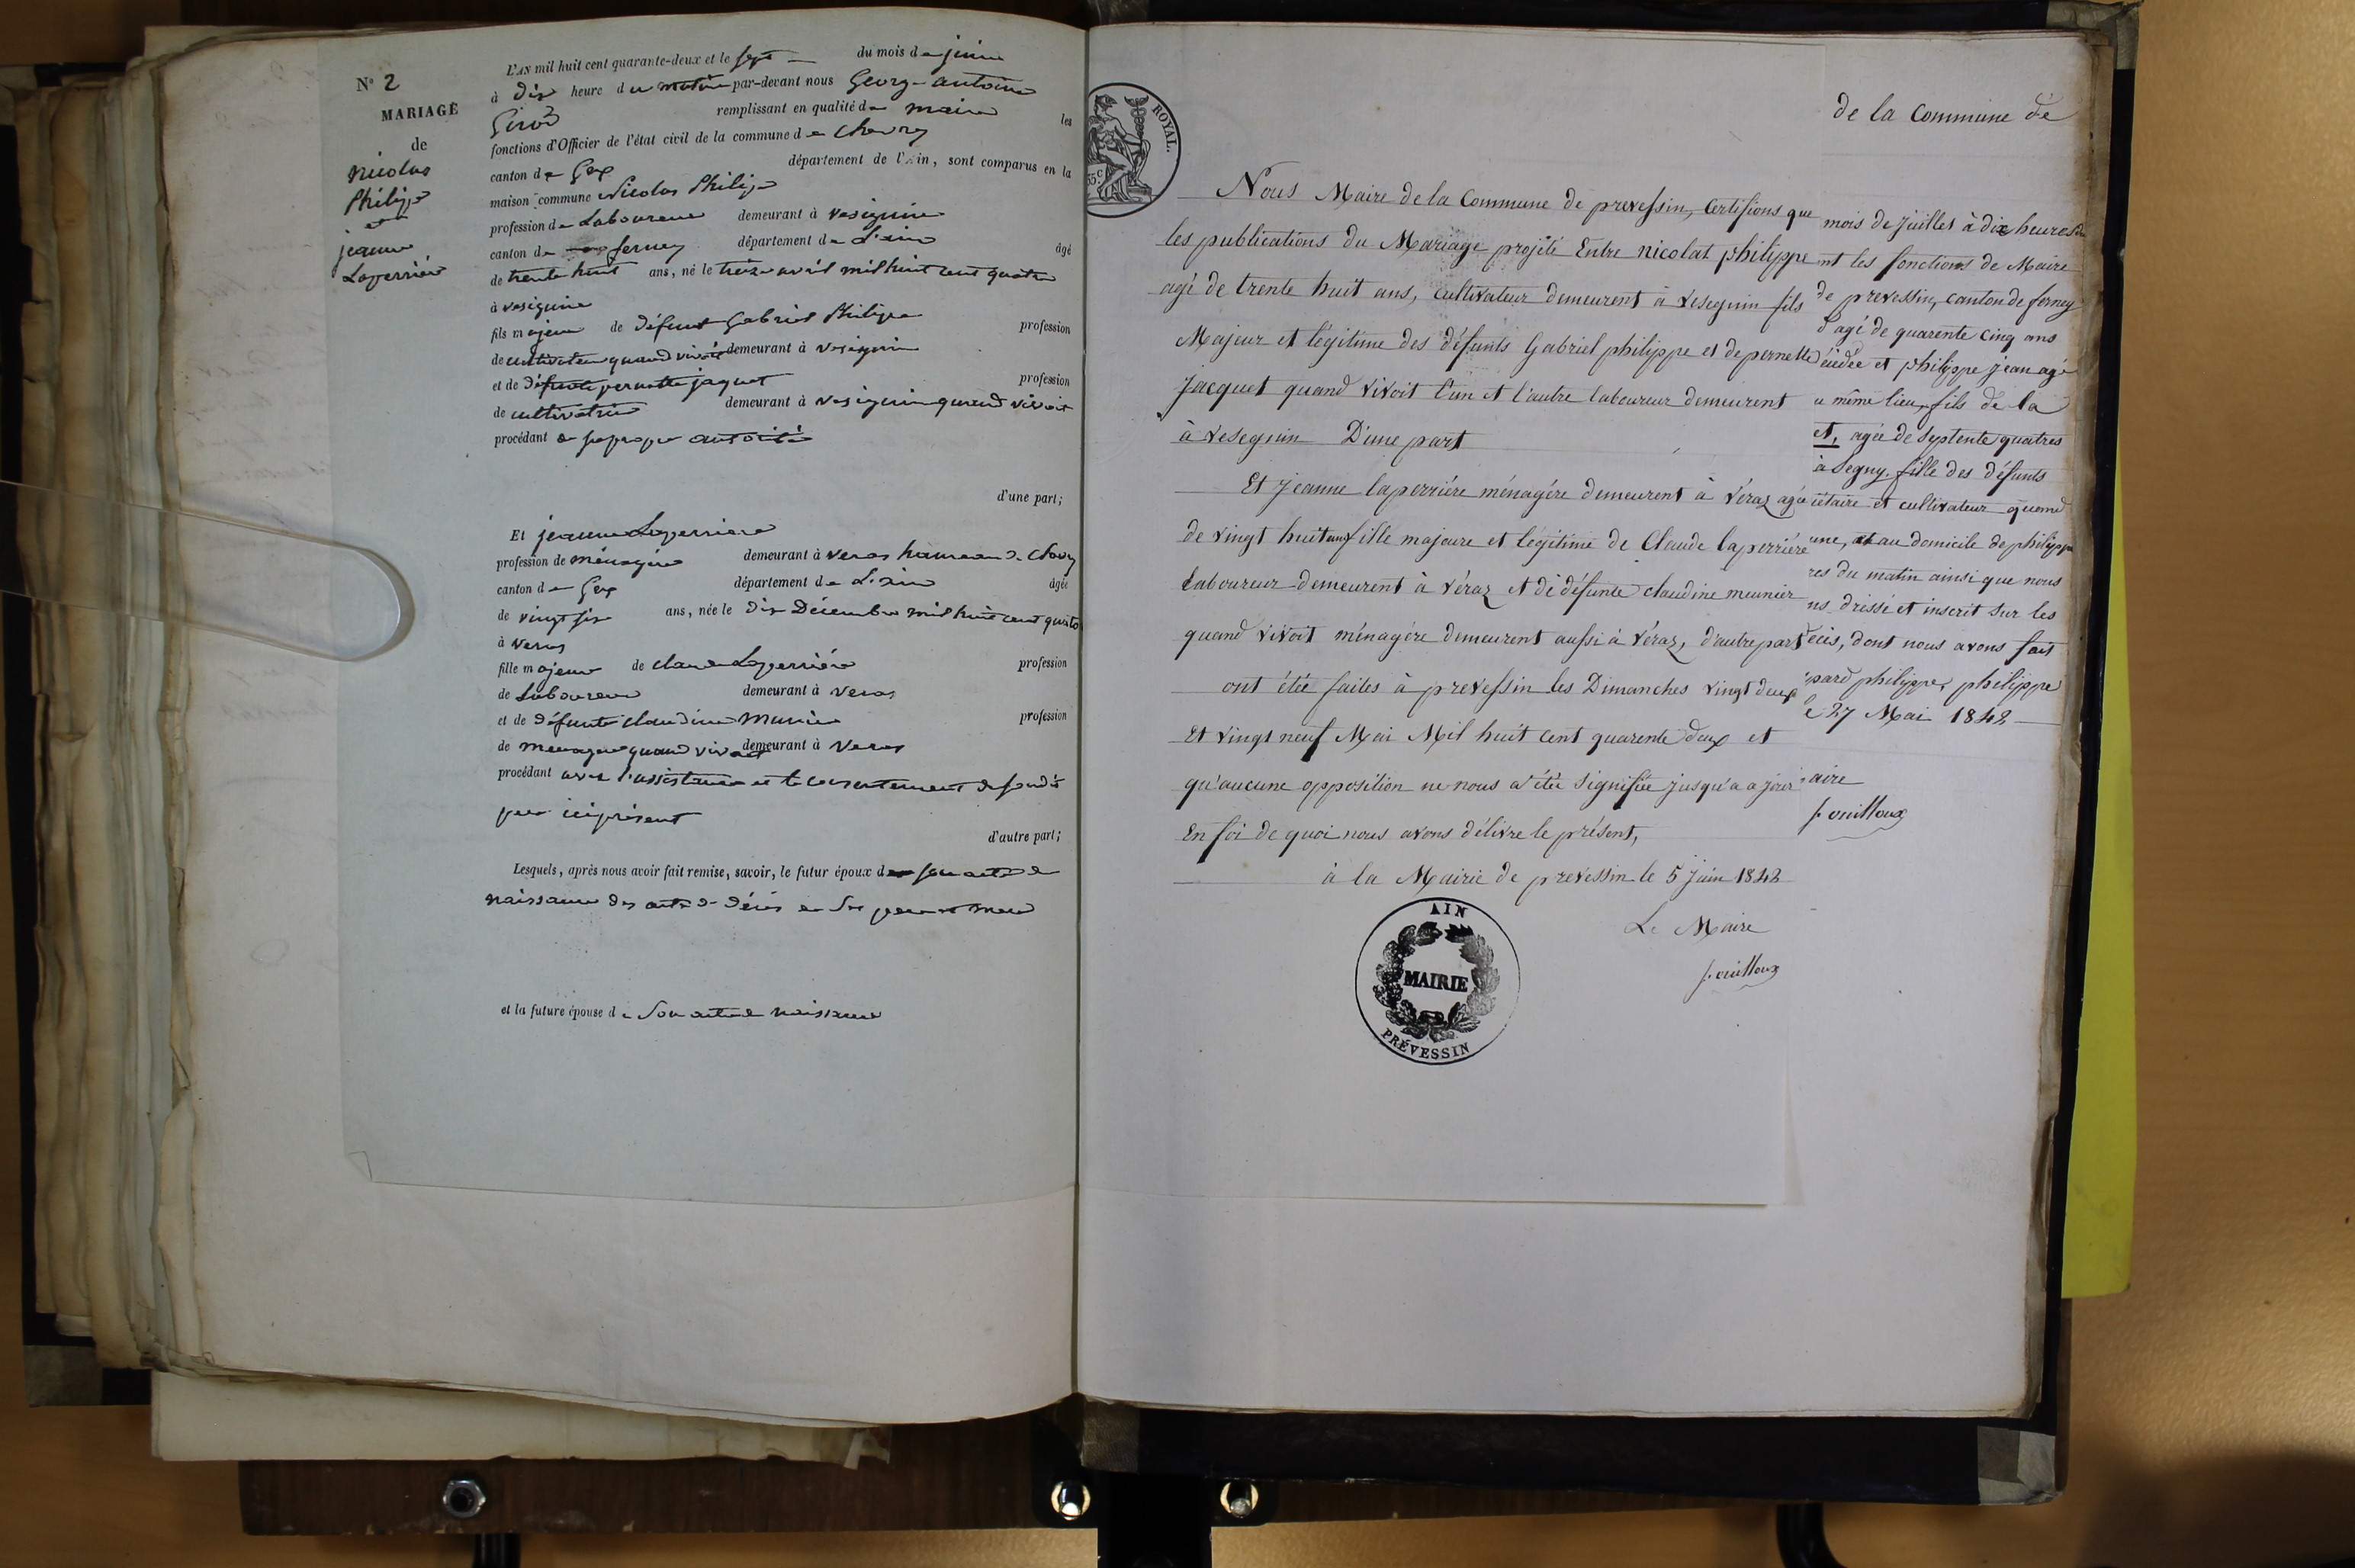 N° 2
MARIAGE
de
Nicolas
Philippe
et
jeanne
Laperrière
L'AN mil huit cent quarante-deux et le sept du mois de juin
à dix heure du matin par-devant nous George antoine
Girod remplissant en qualité de maire les
fonctions d'Officier de l'état civil de la commune de Chevry
canton de Gex département de l'Ain, sont comparus en la
maison commune Nicolas Philippe
profession de Laboureur demeurant à vesignin
canton de ferney département de L'ain âgé
de trente huit ans, né le treize avril mil huit cent quatre
à vesignin
fils majeur de défunt Gabriel Philippe profession
de cultivateur quand vivait demeurant à vesignin
et de défunte pernette jaquet profession
de cultivatrice demeurant à vesignin quand vivait
procédant de sa propre autorité
d'une part;
Et jeanne Laperrière
profession de ménagère demeurant à veras hameau de Chevry
canton de Gex département de L'ain âgée
de vingt six ans, née le dix Décembre mil huit cent quinze
à veras
fille majeure de claude Laperrière profession
de Laboureur demeurant à veras
et de défunte claudine Munier profession
de menagere quand vivait demeurant à Veras
procédant avec l'assistance et le consentement de son dit
père ici présent
d'autre part;
Lesquels, après nous avoir fait remise, savoir, le futur époux de son acte de
naissance des actes de décès de ses père et mère
et la future épouse de son acte de naissance
ROYAL.
35 c.
Nous Maire de la Commune de prevessin, Certifions que
les publications du Mariage projeté Entre nicolat philippe
agé de trente huit ans, cultivateur demeurent à veseguin fils
Majeur et légitime des défunts Gabriel philippe et de pernette
jacquet quand vivoit l'un et l'autre laboureur demeurent
à veseguin D'une part
Et jeanne laperriére ménagére demeurent à véraz agée
de vingt huit ans fille majeure et légitime de Claude laperriére
Laboureur demeurent à véraz et de défunte claudine meunier
quand vivoit ménagére demeurent aussi à véraz, d'autre part
ont étée faites à prevessin les Dimanches vingt deux
Et vingt neuf Mai Mil huit cent quarente deux et
qu'aucune opposition ne nous a étée signifiée jusqu'a a jour
En foi de quoi nous avons délivre le présent,
à la Mairie de prevessin le 5 juin 1842
Le Maire
fouilloux
AIN
MAIRIE
PRÉVESSIN
de la Commune de
mois de juillet à dix heures du
nt les fonctions de Maire
de prevessin, canton de ferney
d'agé de quarente cinq ans
décédée et philippe jean agé
u même lieu, fils de la
et, agée de septente quatres
à Segny, fille des défunts
iétaire et cultivateur quand
une, et au domicile de philippe
res du matin ainsi que nous
ns drissé et inscrit sur les
décès, dont nous avons fait
pard philippe, philippe
le 27 Mai 1842
aire
fouilloux